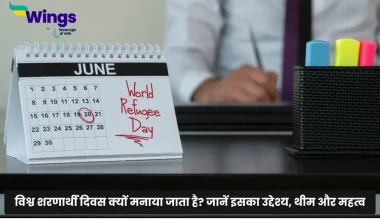 Wings
by leverage edu
JUNE
World
Refugee
Day
1 2 3 4 5 6 7
8 9 10 11 12 13 14
15 16 17 18 19 20 21
22 23 24 25 26 27 28
29 30
विश्व शरणार्थी दिवस क्यों मनाया जाता है? जानें इसका उद्देश्य, थीम और महत्व